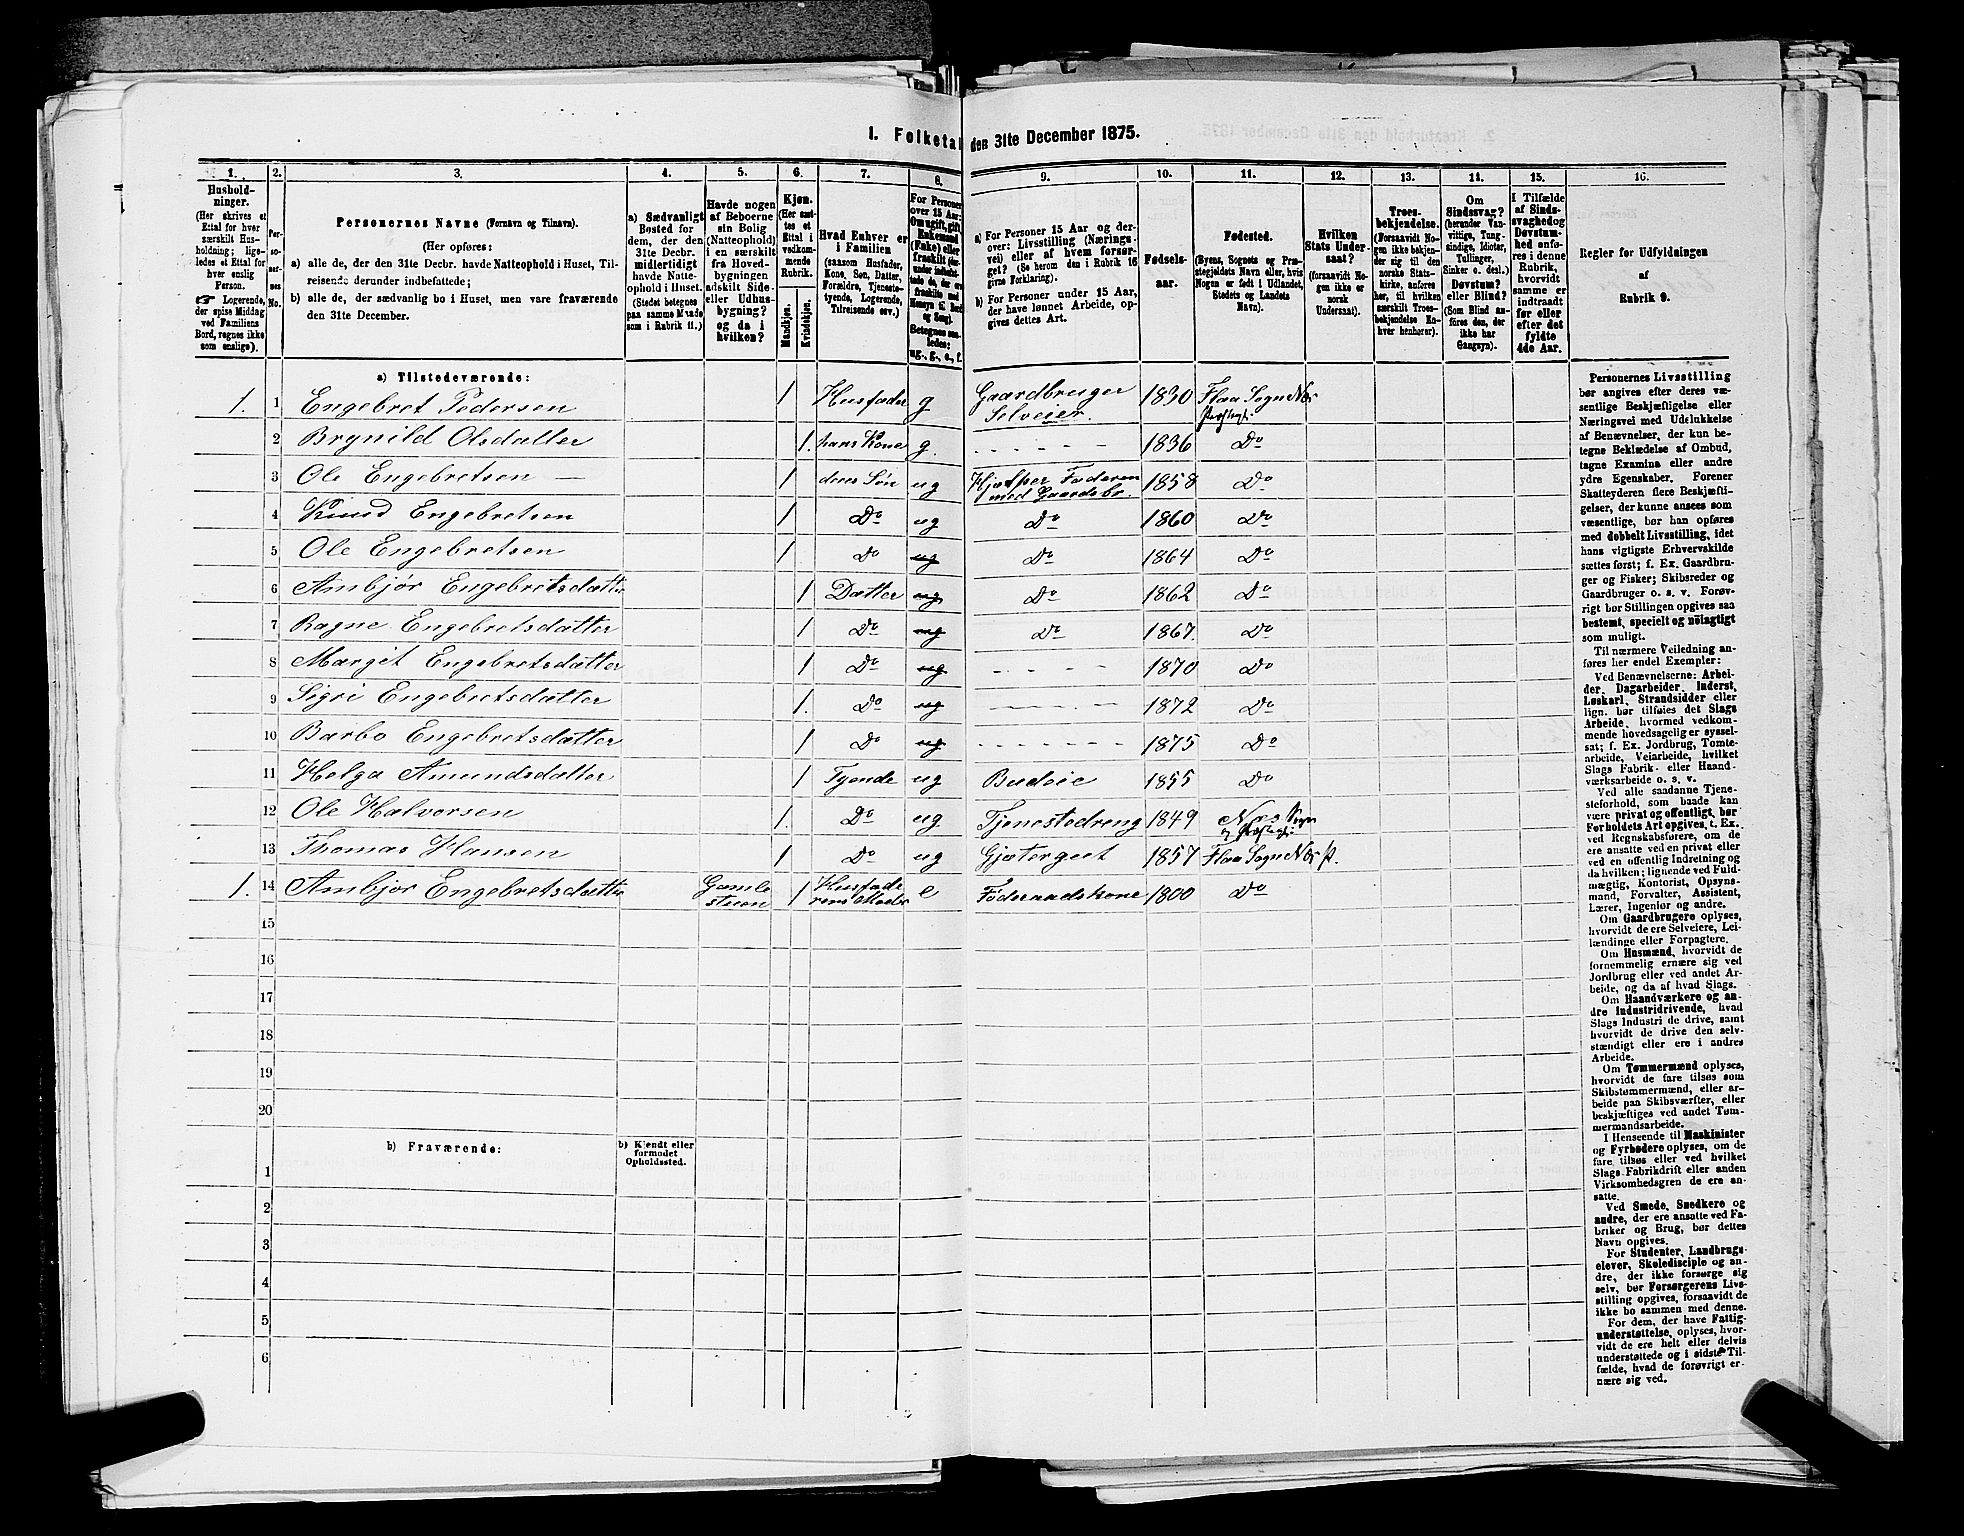 1. Folketal den 31te December 1875.
1. 2. 3. 4. 5. 6. 7. 8. 9. 10. 11. 12. 13. 14. 15. 16.
Hushold-
ninger.
(Her skrives et
Ettal for hver
særskilt Hus-
holdning; lige-
ledes et Ettal for
hver enslig
Person.
☞ Logerende,
der spise Middag
ved Familiens
Bord, regnes ikke
som enslige).
Per-
so-
ner-
nes
No.
Personernes Navne (Fornavn og Tilnavn).
(Her opføres:
a) alle de, der den 31te Decbr. havde Natteophold i Huset, Til-
reisende derunder indbefattede;
b) alle de, der sædvanlig bo i Huset, men vare fraværende
den 31te December.
a) Sædvanligt
Bosted for
dem, der den
31te Decbr.
midlertidigt
havde Natte-
ophold i Huset.
(Stedet betegnes
paa samme Maade
som i Rubrik 11.)
Havde nogen
af Beboerne
sin Bolig
(Natteophold)
i en særskilt
fra Hoved-
bygningen
adskilt Side-
eller Udhus-
bygning?
og da i
hvilken?
Kjøn.
(Her sæt-
tes et
Ettal i
vedkom-
mende
Rubrik.
Mandkjøn.
Kvindekjøn.
Hvad Enhver er
i Familien
(saasom Husfader,
Kone, Søn, Datter,
Forældre, Tjeneste-
tyende, Logerende,
Tilreisende osv.)
For Personer
over 15 Aar:
Om ugift, gift,
Enkemand
(Enke) eller
fraskilt
Betegnes saa-
ledes:
ug., g., e., f.
a) For Personer 15 Aar og der-
over: Livsstilling (Nærings-
vei) eller af hvem forsør-
get? (Se herom den i Rubrik 16
givne Forklaring).
b) For Personer under 15 Aar,
der have lønnet Arbeide, op-
gives dettes Art.
Fødsels-
aar.
Fødested.
(Byens, Sognets og Præ-
stegjeldets Navn eller, hvis
Nogen er født i Udlandet,
Stedets og Landets
Navn).
Hvilken
Stats Under-
saat?
(forsaavidt No-
gen ikke er
norsk
Undersaat).
Troes-
bekjendelse.
(Forsaavidt No-
gen ikke bekjen-
der sig til den
norske Stats-
kirke, anføres
her, til hvilken
særskilt Troes-
bekjendelse En-
hver henhører).
Om
Sindssvag?
(herunder Van-
vittige, Tung-
sindige, Idioter,
Tullinger,
Sinker o. desl.)
Døvstum?
eller Blind?
(Som Blind an-
føres den, der
ikke har
Gangsyn).
I Tilfælde
af Sinds-
svaghed og
Døvstum-
hed anfø-
res i denne
Rubrik,
hvorvidt
samme er
indtraadt
før eller
efter det
fyldte
4de Aar.
Regler for Udfyldningen
af
Rubrik 9.
a) Tilstedeværende:
1. 1 Engebret Pedersen 1 Husfader g Gaardbruger Selveier. 1830 Flaa Sogn Næs Præstegj.
2 Brynild Olsdatter 1. hans Kone g. - - - - 1836 Do
3 Ole Engebretsen — 1 deres Søn ug Hjælper Faderen med Gaardsbr. 1858 Do
4 Knud Engebretsen 1 Do ug Do 1860 Do
5 Ole Engebretsen 1 Do ug Do 1864 Do
6 Ambjør Engebretsdatter 1 Datter ug Do 1862 Do
7 Ragne Engebretsdatter 1 Do ug Do 1867. Do
8 Margit Engebretsdatter 1 Do ug - - - - 1870 Do
9 Sigri Engebretsdatter 1. Do ug - - - - 1872 Do
10 Barbo Engebretsdatter 1 Do ug - - - - 1875 Do
11 Helga Amundsdatter 1 Tyende ug Budeie 1855 Do
12 Ole Halvorsen 1. Do ug Tjenestedreng 1849 Næs Sogn og Præstegj.
13 Thomas Hansen 1 Do ug Gjætergut 1857 Flaa Sogn Næs P.
1. 14 Ambjør Engebretsdatter Gamle stuen 1 Husfaderens Moder e Føderaadskone 1800 Do
15
16
17
18
19
20
b) Fraværende:
b) Kjendt eller
formodet
Opholdssted.
1
2
3
4
5
6
Personernes Livsstilling
bør angives efter deres væ-
sentlige Beskjæftigelse eller
Næringsvei med Udelukkelse
af Benævnelser, der kun be-
tegne Beklædelse af Ombud,
tagne Examina eller andre
ydre Egenskaber. Forener
Skatteyderen flere Beskjæfti-
gelser, der kunne ansees som
væsentlige, bør han opføres
med dobbelt Livsstilling, idet
hans vigtigste Erhvervskilde
sættes først; f. Ex. Gaardbru-
ger og Fisker; Skibsreder og
Gaardbruger o. s. v. Forøv-
rigt bør Stillingen opgives saa
bestemt, specielt og nøiagtigt
som muligt.
Til nærmere Veiledning an-
føres her endel Exempler:
Ved Benævnelserne: Arbei-
der, Dagarbeider, Inderst,
Løskarl, Strandsidder eller
lign. bør tilføies det Slags
Arbeide, hvormed vedkom-
mende hovedsagelig er syssel-
sat; f. Ex. Jordbrug, Tomte-
arbeide, Veiarbeide, hvilket
Slags Fabrik- eller Haand-
værksarbeide o. s. v.
Ved alle saadanne Tjene-
steforhold, som baade kan
være privat og offentligt, bør
Forholdets Art opgives, t. Ex.
ved Regnskabsførere, om de
ere ansatte ved en privat eller
ved en offentlig Indretning og
da hvilken; lignende ved Fuld-
mægtig, Kontorist, Opsyns-
mand, Forvalter, Assistent,
Lærer, Ingeniør og andre.
Om Gaardbrugere oplyses,
hvorvidt de ere Selveiere, Lei-
lændinge eller Forpagtere.
Om Husmænd, hvorvidt de
fornemmelig ernære sig ved
Jordbrug eller ved andet Ar-
beide, og da af hvad Slags.
Om Haandværkere og an-
dre Industridrivende, hvad
Slags Industri de drive, samt
hvorvidt de drive den selv-
stændigt eller ere i andres
Arbeide.
Om Tømmermænd oplyses,
hvorvidt de fare tilsøs som
Skibstømmermænd, eller ar-
beide paa Skibsværfter, eller
beskjæftiges ved andet Tøm-
mermandsarbeide.
I Henseende til Maskinister
og Fyrbødere oplyses, om de
fare tilsøs eller ved hvilket
Slags Fabrikdrift eller anden
Virksomhedsgren de ere an-
satte.
Ved Smede, Snedkere og
andre, der ere ansatte ved Fa-
briker og Brug, bør dettes
Navn opgives.
For Studenter, Landbrugs-
elever, Skoledisciple og an-
dre, der ikke forsørge sig
selv, bør Forsørgerens Livs-
stilling opgives, forsaavidt de
ikke bo sammen med denne.
For dem, der have Fattig-
understøttelse, oplyses, hvor-
vidt de ere helt eller delvis
understøttede og i sidste Til-
fælde, hvad de forøvrigt er-
nære sig ved.